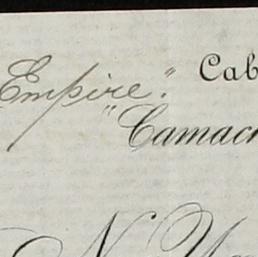 Empire." Cab
"Camach
N. Y